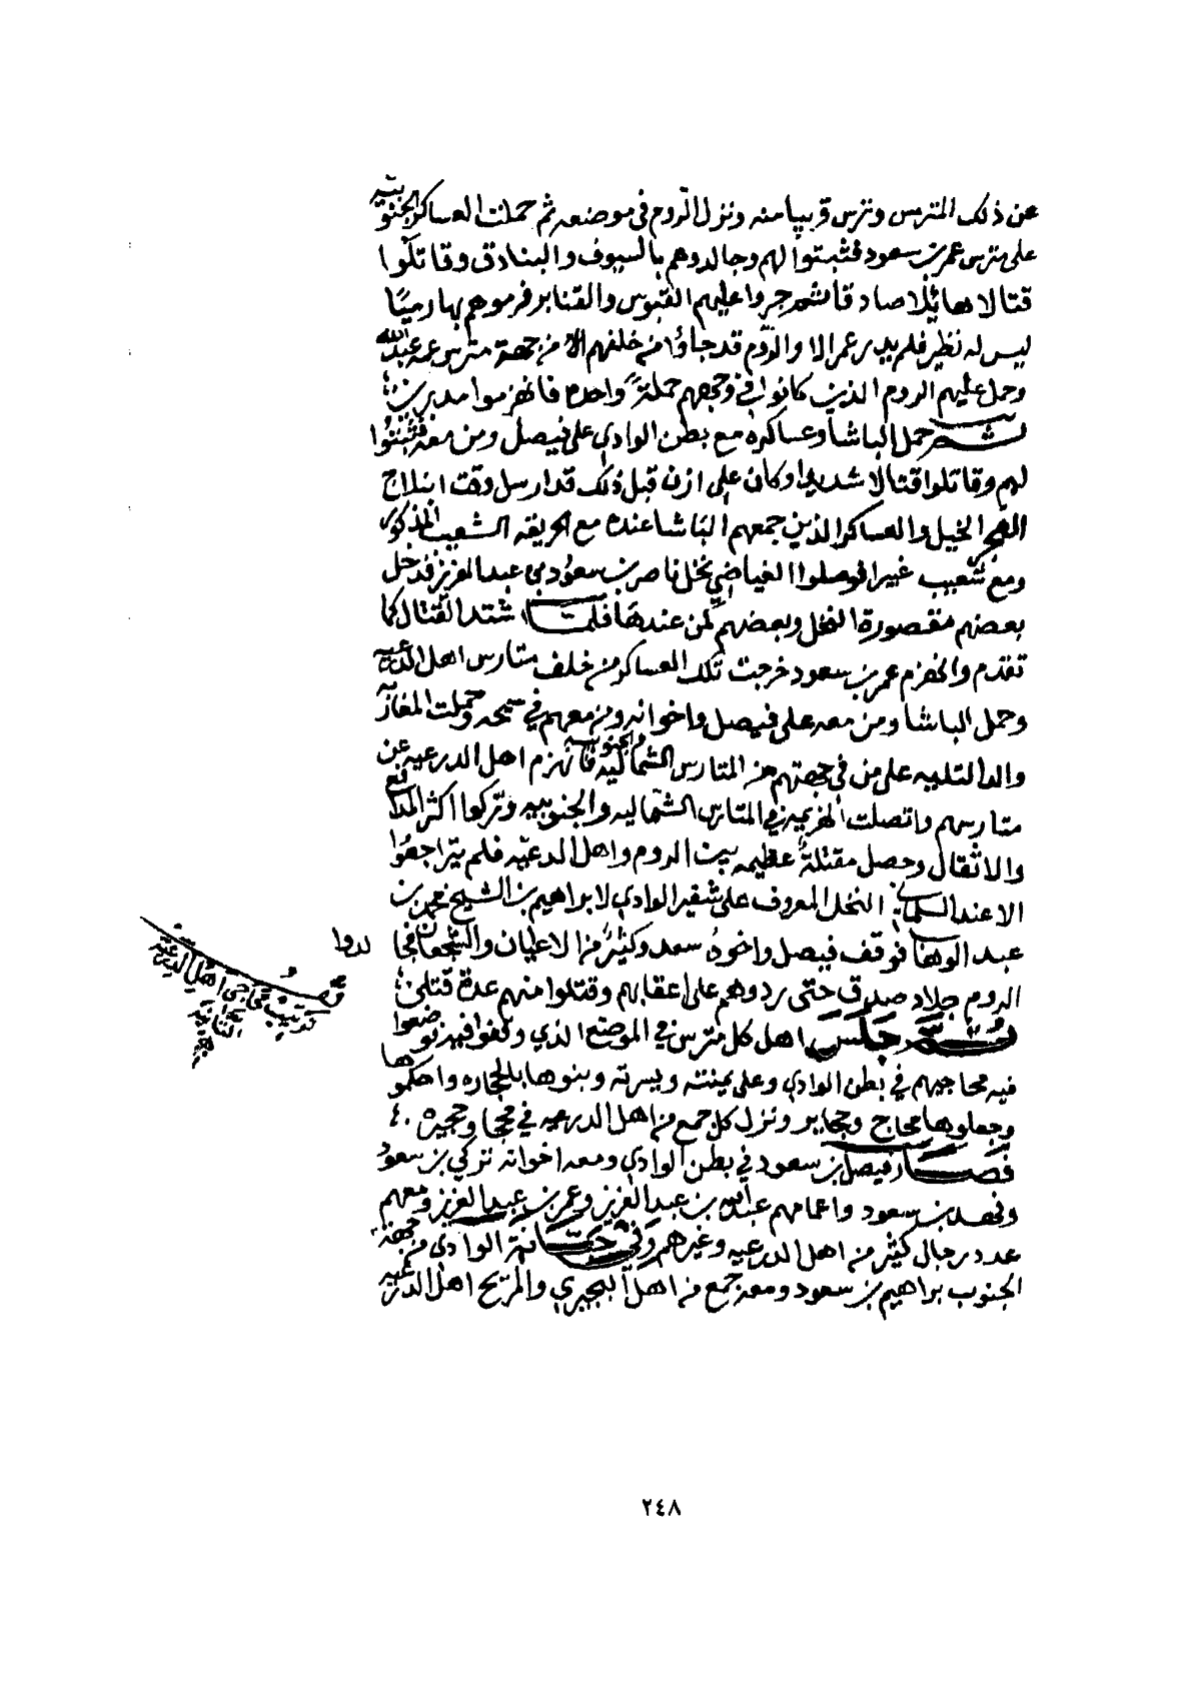 عن ذلك المترس وتترس قريبا منه ونزل الروم في موضعه ثم حملت العساكر الجنوبيه
على مترس عمر بن سعود فثبتوا لهم وجالدوهم بالسيوف والبنادق وقاتلوا
قتالا هائلا صادقا ثم جروا عليهم القبوس والقنابر فرموهم بها رميًا
ليس له نظير فلم يدر عمر الا والروم قد جاؤا من خلفهم الا من جهة مترس عمه عبدالله
وحمل عليهم الروم الذين كانوا في وجههم حملةً واحده فانهزموا مدبرين
ثم حمل الباشا وعساكره مع بطن الوادي على فيصل ومن معه فثبتوا
لهم وقاتلوا قتالا شديدا وكان علي ازن قبل ذلك قد ارسل وقت ابتلاج
الفجر الخيل والعساكر الذين جمعهم الباشا عنده مع الحريقه الشعيب المذكور
ومع شعيب غبيرا فوصلوا الغياضي نخل ناصر بن سعود بن عبدالعزيز فدخل
بعضهم مقصورة النخل وبعضهم كمن عندها فلما اشتد القتال كما
تقدم وانهزم عمر بن سعود خرجت تلك العساكر من خلف متارس اهل الدرعيه
وحمل الباشا ومن معه على فيصل واخوانه ومن معهم في سمحه وحملت المغاربه
والدالتليه على من في جهتهم من المتارس الشماليه والجنوبيه فانهزم اهل الدرعيه عن
متارسهم واتصلت الهزيمه في المتارس الشماليه والجنوبيه وتركوا اكثر المدافع
والاثقال وحصل مقتلةً عظيمه بين الروم واهل الدرعيه فلم يتراجعوا
الا عند السلماني النخل المعروف على شفير الوادي لابراهيم بن الشيخ محمد بن
عبدالوهاب فوقف فيصل واخوه سعد وكثيرٌ من الاعيان والشجعان فجالدوا
الروم جلاد صدق حتى ردوهم على اعقابهم وقتلوا منهم عدة قتلى
ثم جلس اهل كل مترس في الموضع الذي وقفوا فيه فوضعوا
فيه محاجيهم في بطن الوادي وعلى يمنته ويسرته وبنوها بالحجاره واحكموها
وجعلوها محاج وحجاير ونزل كل جمع من اهل الدرعيه في محجا وحجيره
فصار فيصل بن سعود في بطن الوادي ومعه اخوانه تركي بن سعود
وفهد بن سعود واعمامهم عبدالله بن عبدالعزيز وعمر بن عبدالعزيز ومعهم
عدد رجال كثير من اهل الدرعيه وغيرهم وفي حد حافة الوادي من جهة
الجنوب براهيم بن سعود ومعه جمع من اهل البجيري والمريح اهل الدرعيه
ترتيب محاجي اهل الدرعيه
الثانيه
٢٤٨